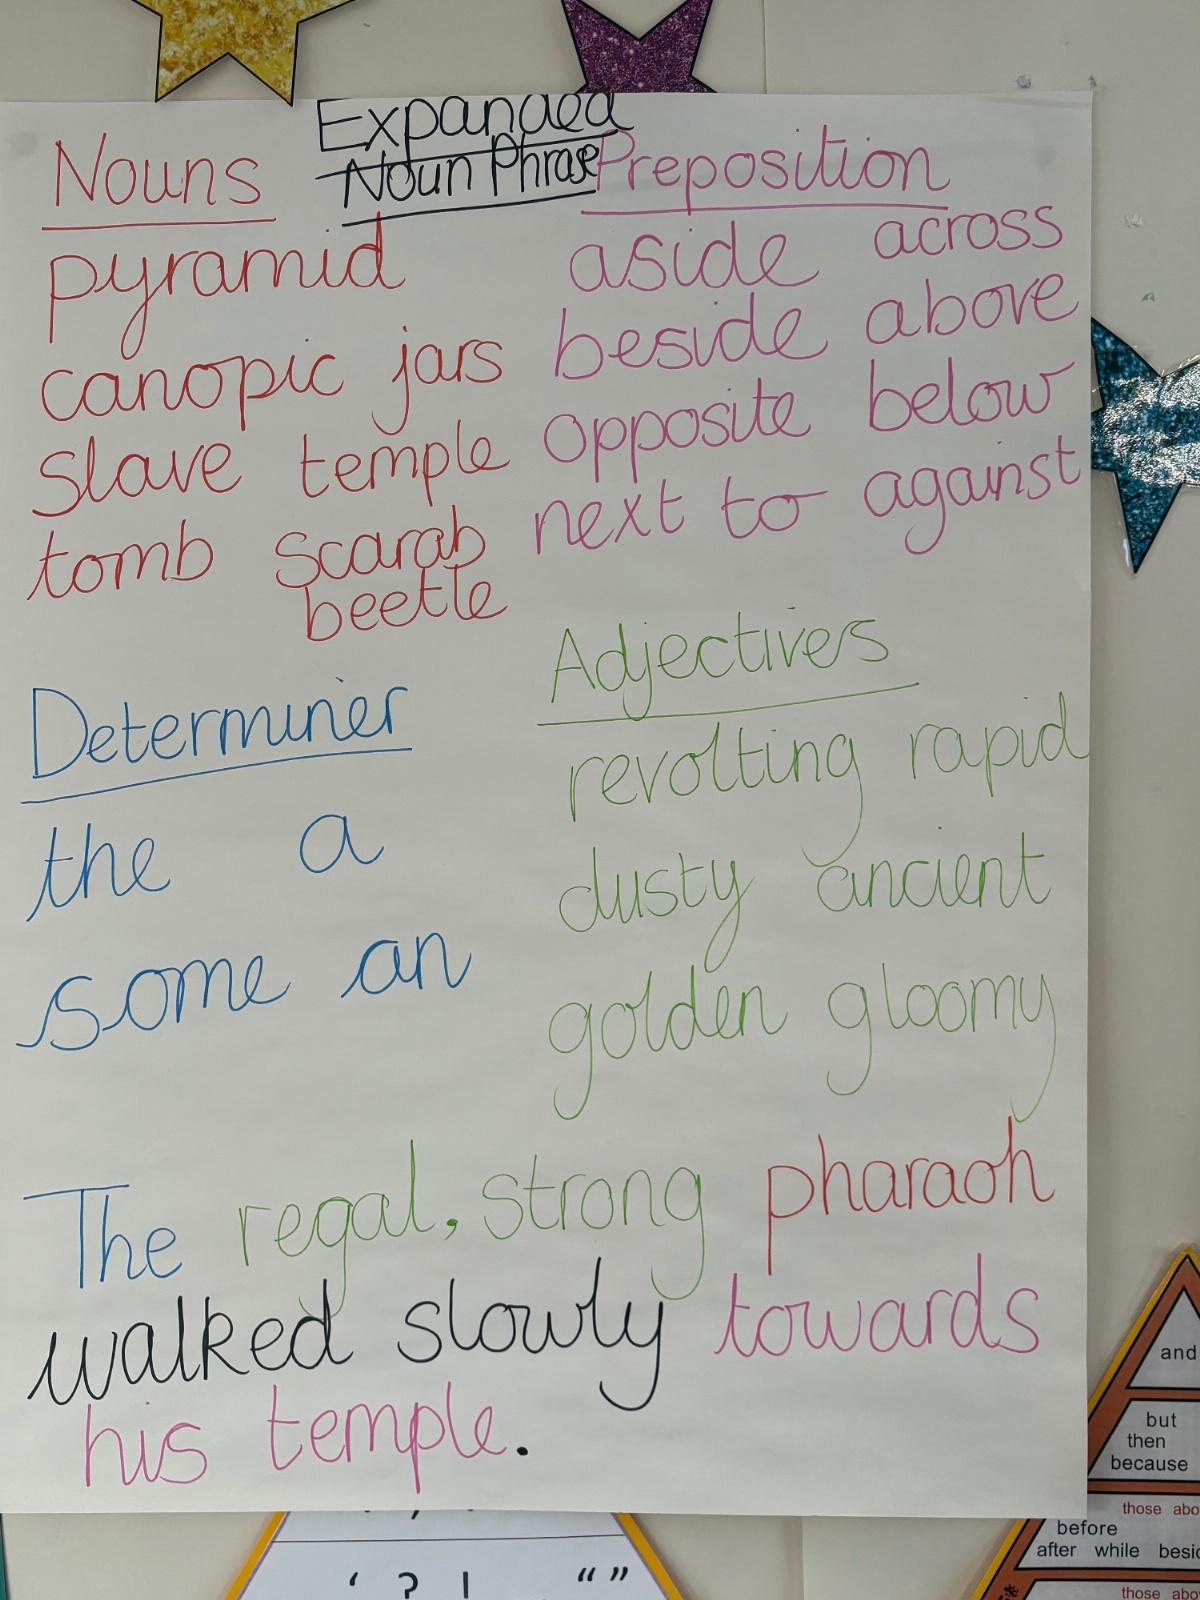 Expanded
Noun Phrase
Nouns
pyramid
canopic jars
slave temple
tomb scarab
beetle
Preposition
aside across
beside above
opposite below
next to against
Determiner
the a
some an
Adjectives
revolting rapid
dusty ancient
golden gloomy
The regal, strong pharaoh
walked slowly towards
his temple.
and
but
then
because
those abo
before
after while besid
those abo
‘ ? ! “ ”